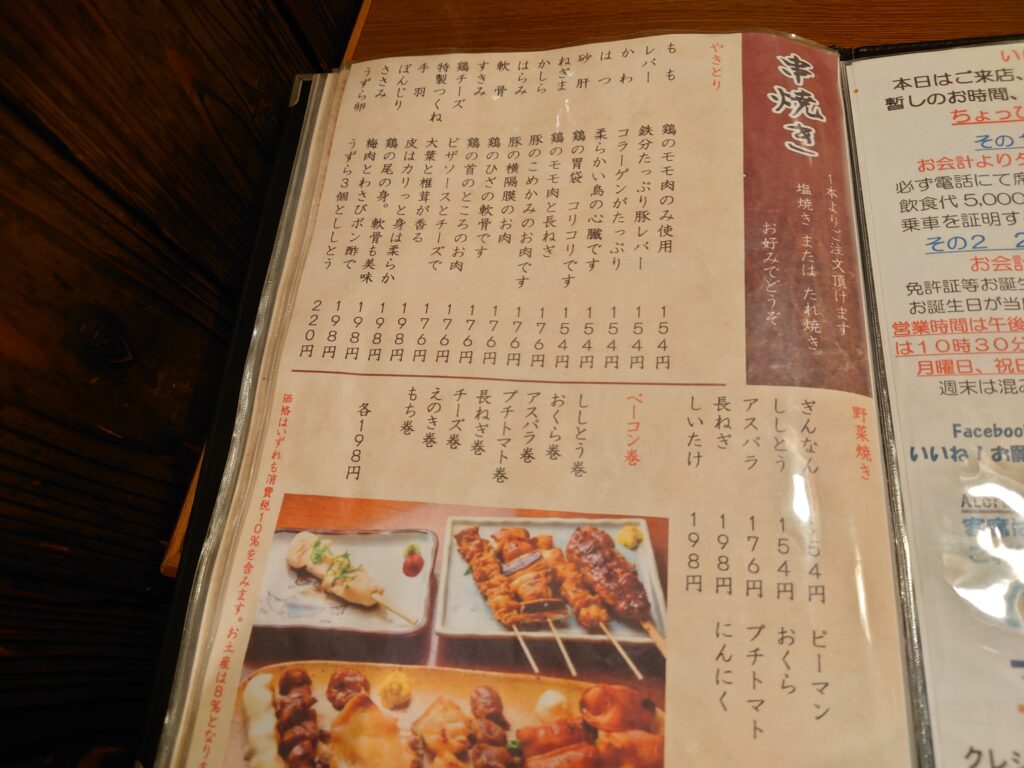 串焼き
1本よりご注文頂けます
塩焼き または たれ焼き
お好みでどうぞ
やきとり
もも 鶏のモモ肉のみ使用 154円
レバー 鉄分たっぷり豚レバー 154円
かわ コラーゲンがたっぷり 154円
はつ 柔らかい鳥の心臓です 154円
砂肝 鶏の胃袋 コリコリです 154円
ねぎま 鶏のモモ肉と長ねぎ 176円
かしら 豚のこめかみのお肉です 176円
はらみ 豚の横隔膜のお肉 176円
軟骨 鶏のひざの軟骨です 176円
すきみ 鶏の首のところのお肉 176円
鶏チーズ ピザソースとチーズで 176円
特製つくね 大葉と椎茸が香る 198円
手羽 皮はカリっと身は柔らか 198円
ぼんじり 鶏の尾の身。軟骨も美味 198円
ささみ 梅肉とわさびポン酢で 198円
うずら卵 うずら3個とししとう 220円
野菜焼き
ぎんなん 154円 ピーマン
ししとう 154円 おくら
アスパラ 176円 プチトマト
長ねぎ 198円 にんにく
しいたけ 198円
ベーコン巻
ししとう巻
おくら巻
アスパラ巻
プチトマト巻
長ねぎ巻
チーズ巻
えのき巻
もち巻
各198円
価格はいずれも消費税10%を含みます。お土産は8%となりま
本日はご来店、
暫しのお時間、
ちょっ
その
お会計より
必ず電話にて席
飲食代5,000
乗車を証明す
その2 2
お会計
免許証等お誕生
お誕生日が当
営業時間は午後
は10時30分
月曜日、祝日
週末は混み
Facebook
いいね!お願
クレジ